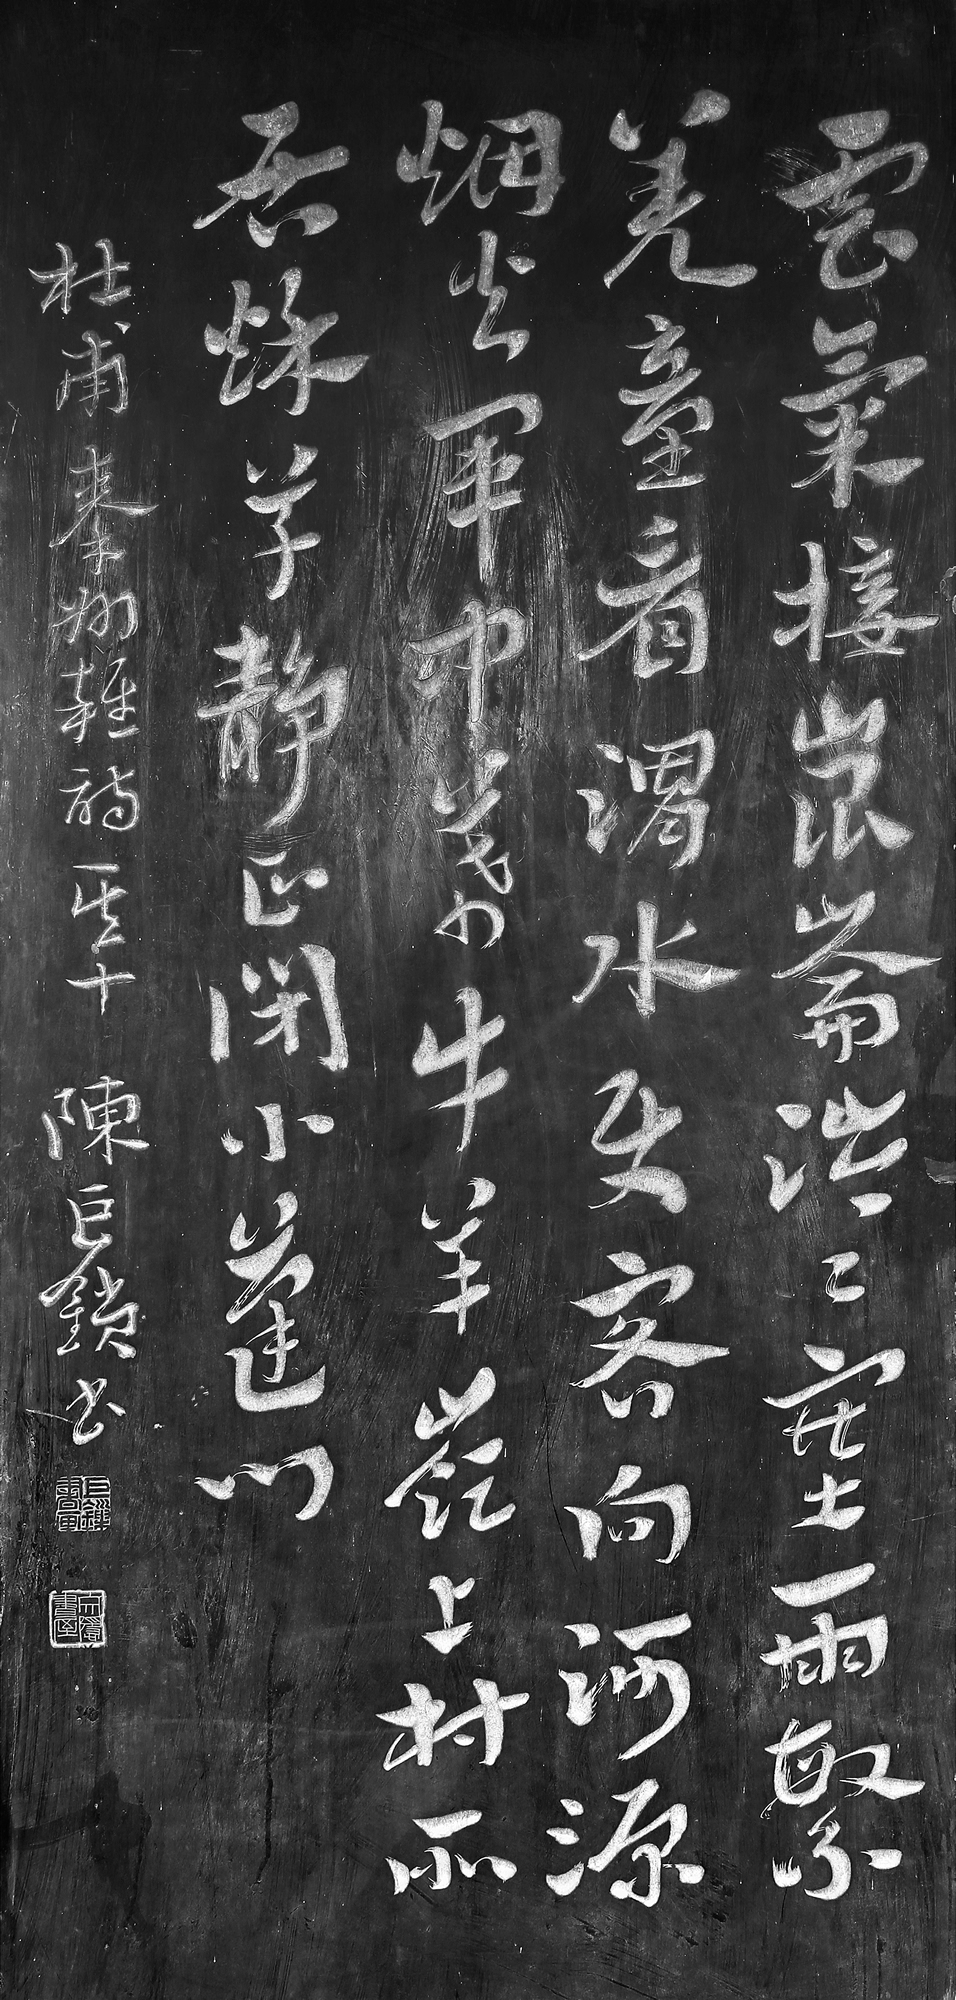 雲氣接崑崙涔〻塞雨繁
羌童看渭水使客向河源
烟火軍中幕牛羊嶺上村所
居秋草静正閉小蓬門
杜甫秦州雜詩其十 陳巨鎖書